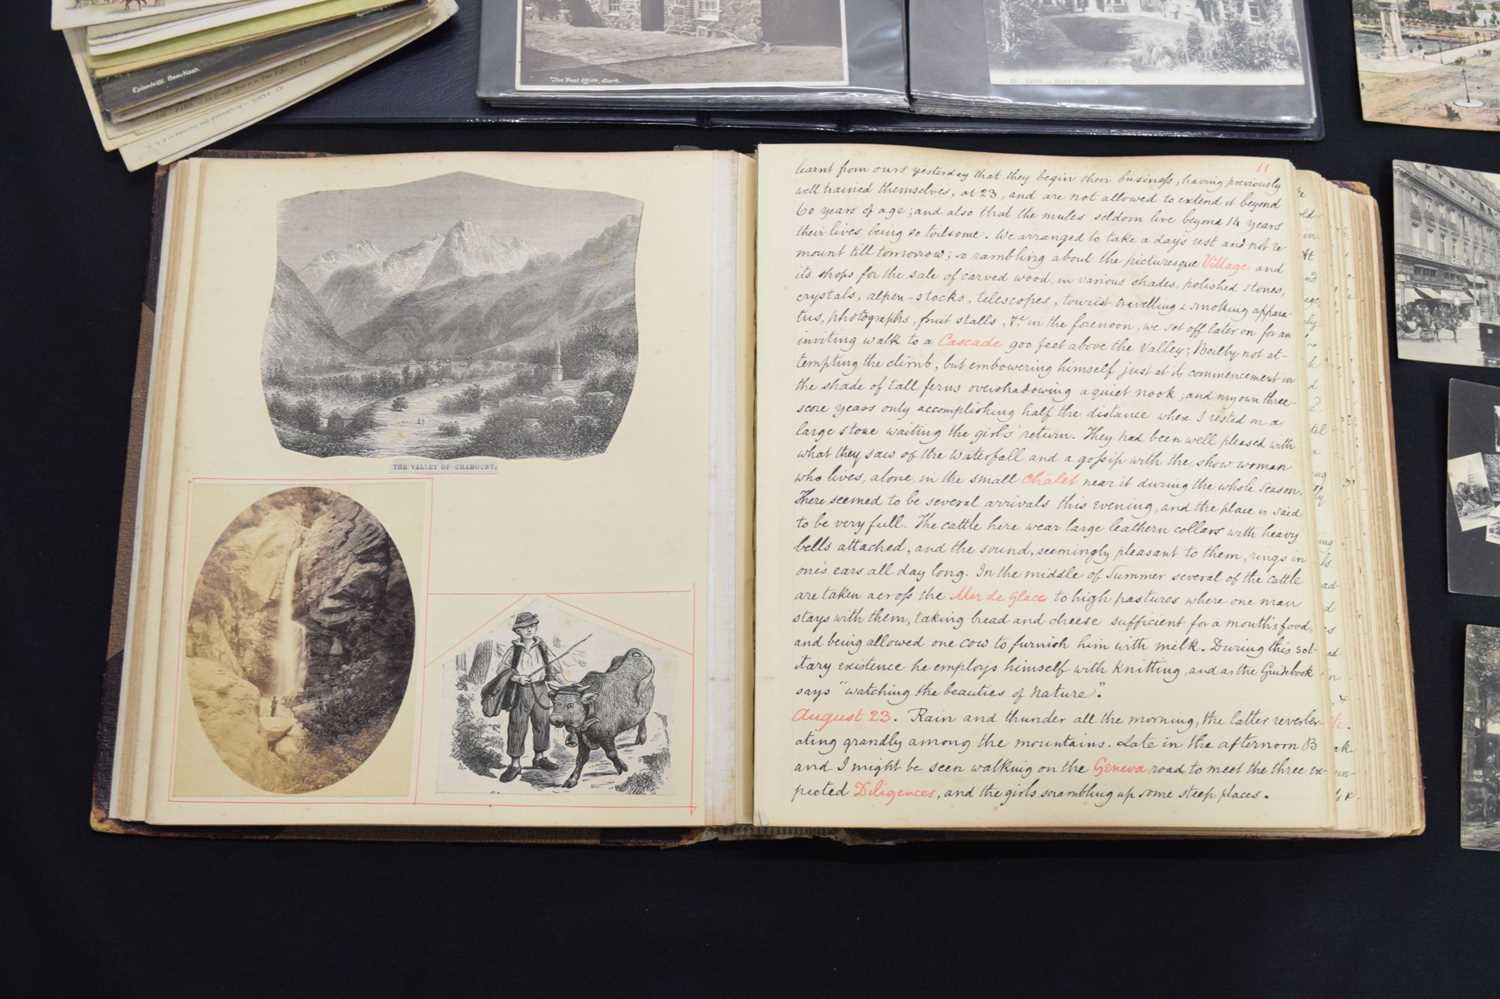 The Post Office, Sark.
THE VALLEY OF CHAMOUNI.
11
learnt from ours yesterday that they begin their business, having previously
well trained themselves, at 23, and are not allowed to extend it beyond
60 years of age; and also that the mules seldom live beyond 14 years
their lives being so toilsome. We arranged to take a days rest and not re
mount till tomorrow; so rambling about the picturesque Village and
its shops for the sale of carved wood, in various shades, polished stones,
crystals, alpen-stocks, telescopes, tourist travelling & smoking appara-
tus, photographs, fruit stalls, &c in the forenoon, we set off later on for an
inviting walk to a Cascade 900 feet above the Valley; Boilby not at-
tempting the climb, but embowering himself just at its commencement in
the shade of tall ferns overshadowing a quiet nook; and my own three-
score years only accomplishing half the distance when I rested on a
large stone waiting the girls' return. They had been well pleased with
what they saw of the Waterfall and a gossip with the show woman
who lives, alone, in the small Chalet near it during the whole Season.
There seemed to be several arrivals this evening, and the place is said
to be very full. The cattle here wear large leathern collars with heavy
bells attached, and the sound, seemingly pleasant to them, rings in
one's ears all day long. In the middle of Summer several of the cattle
are taken across the Mer de Glace to high pastures where one man
stays with them, taking bread and cheese sufficient for a month's food,
and being allowed one cow to furnish him with milk. During this sol-
itary existence he employs himself with knitting, and as the Guidebook
says "watching the beauties of nature".
August 23. Rain and thunder all the morning, the latter reverber-
ating grandly among the mountains. Late in the afternoon B
and I might be seen walking on the Geneva road to meet the three ex-
pected Diligences, and the girls scrambling up some steep places.